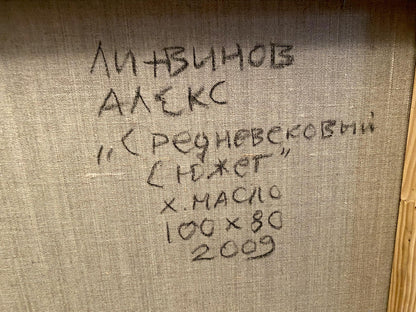 ЛИТВИНОВ
АЛЕКС
„Средневековый
Сюжет"
х. масло
100 х 80
2009